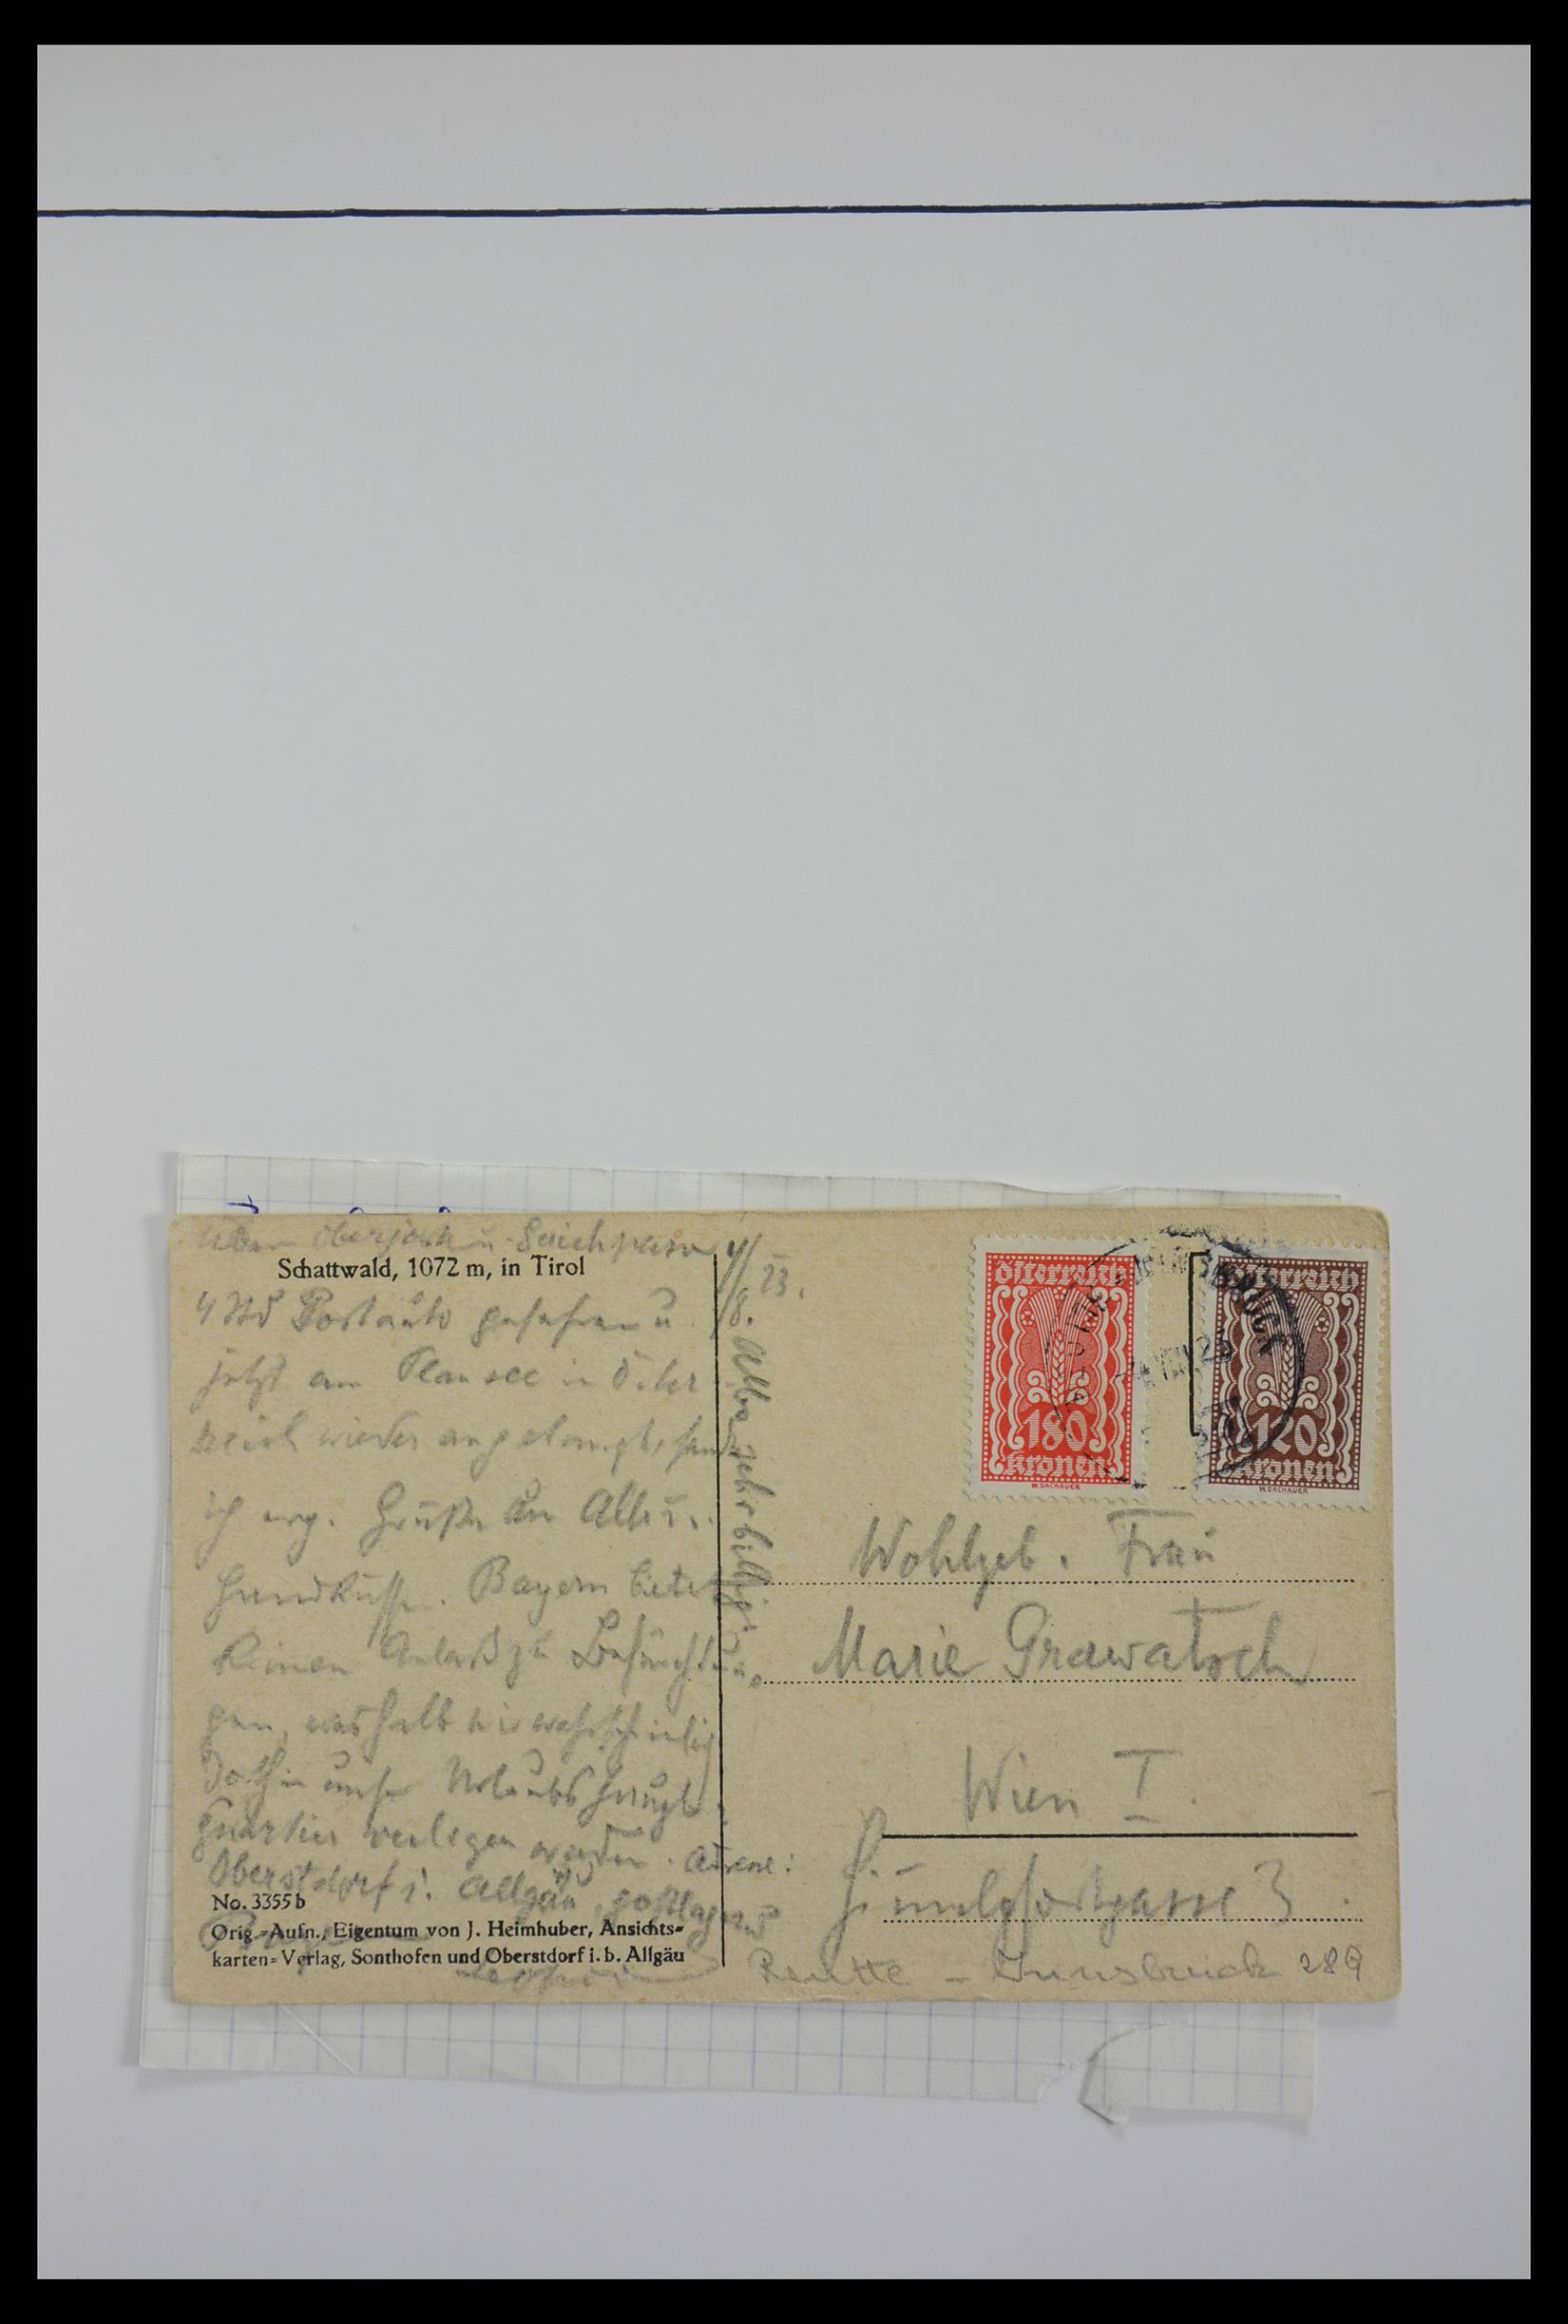 Oberjoch u.
4/8. 23.
Schattwald, 1072 m, in Tirol
4 Std Postauto gefahren u.
jetzt am Plansee in Öster
reich wieder angelangt, sende
ich erg. Grüße an Alle u.
Handküsse. Bayern bietet
keinen Anlaß zu Befürchtun
gen, weshalb wir wahrscheinlich
dorthin unser Urlaubshaupt
quartier verlegen werden. Adresse:
Oberstdorf i. Allgäu, postlagernd
Alles sehr billig.
No. 3355 b
Orig.=Aufn., Eigentum von J. Heimhuber, Ansichts=
karten=Verlag, Sonthofen und Oberstdorf i. b. Allgäu
österreich
180
kronen
W. DACHAUER
österreich
120
kronen
W. DACHAUER
Wohlgeb. Frau
Marie Grawatsch
Wien I.
Himmelpfortgasse 3.
Reutte – Innsbruck 289